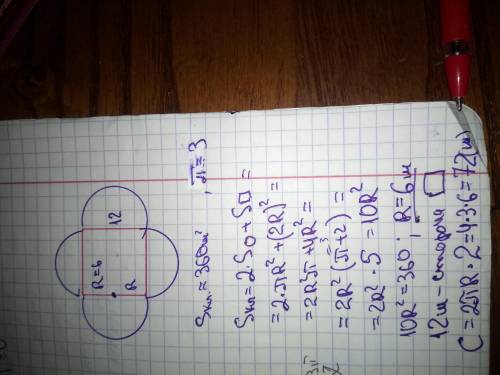 12
R=6
R
Sкл.=360м², π=3
Sкл=2S○+S□=
=2·πR²+(2R)²=
=2R²π+4R²=
=2R²(π+2)=
3
=2R²·5=10R²
10R²=360; R=6м
12м-сторона □
C=2πR·2=4·3·6=72(м)